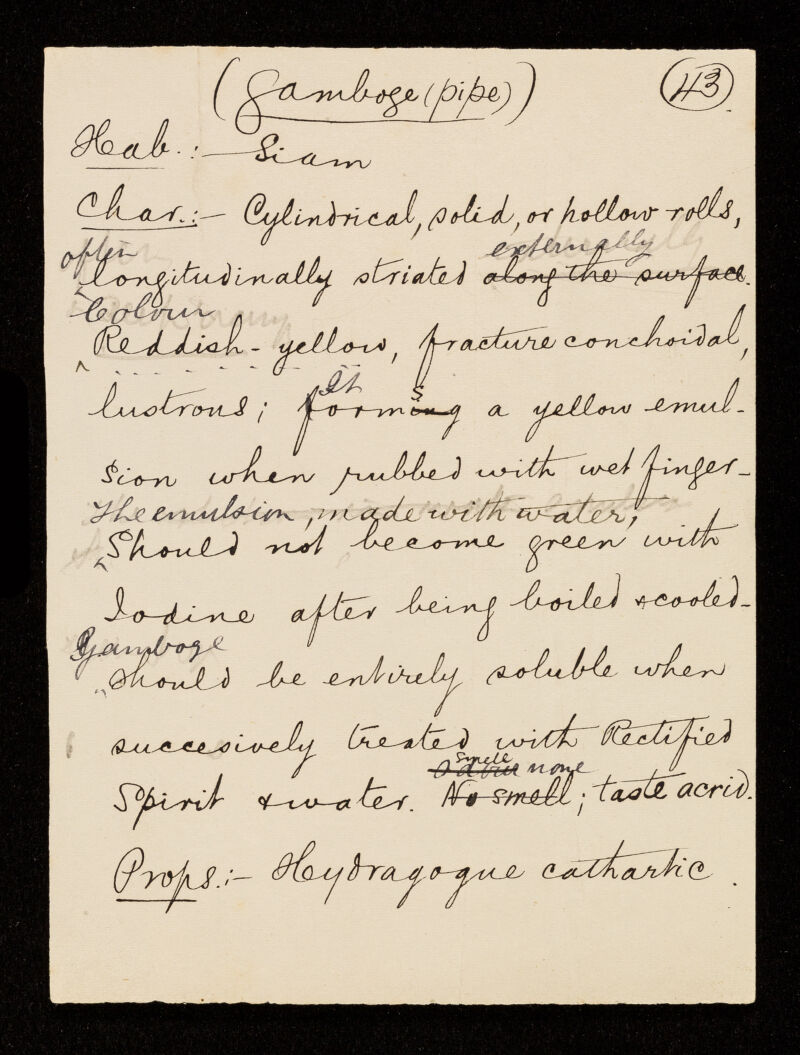 (Gamboge (pipe))
43
Hab.:— Siam
Char.:— Cylindrical, solid, or hollow rolls,
often externally
longitudinally striated along the surface.
Colour
Reddish-yellow, fracture conchoidal,
It s
lustrous; forming a yellow emul-
sion when rubbed with wet finger-
The emulsion, made with water,
Should not become green with
Iodine after being boiled & cooled-
Gamboge
should be entirely soluble when
succesively treated with Rectified
smell
Odour none
Spirit & water. No smell; taste acrid.
Props.:— Hydragogue cathartic.